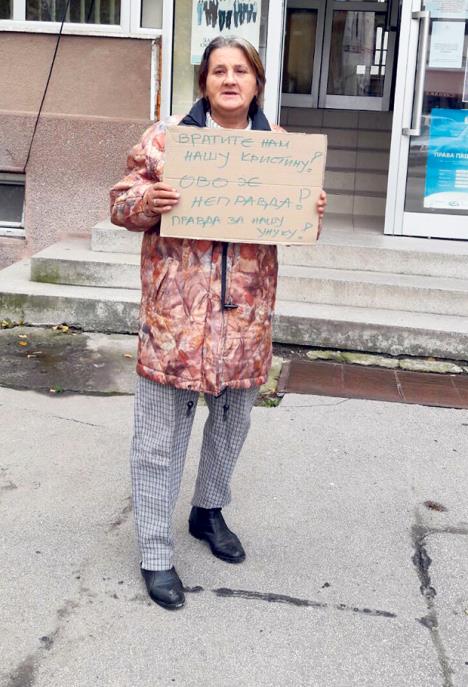 ВРАТИТЕ НАМ
НАШУ КРИСТИНУ?
ОВО ЈЕ
НЕПРАВДА!?
ПРАВДА ЗА НАШУ
УНУКУ.?
ПРАВА